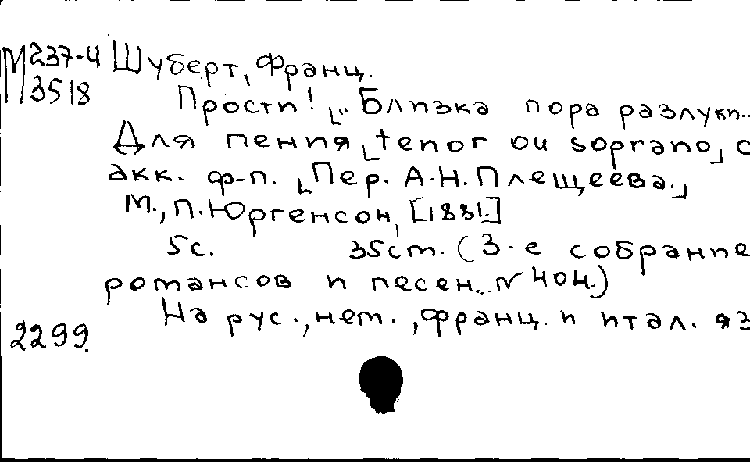 М 237-4 Шуберт, Франц.
3518
Прости! [„Близка пора разлуки...
Для пения [tenor ou soprano] с
акк. ф-п. [Пер. А.Н.Плещеева.]
М., П.Юргенсон, [1881.]
5с. 35см. (3-е собрание
романсов и песен... № 404.)
На рус., нем., франц. и итал. яз
2299.